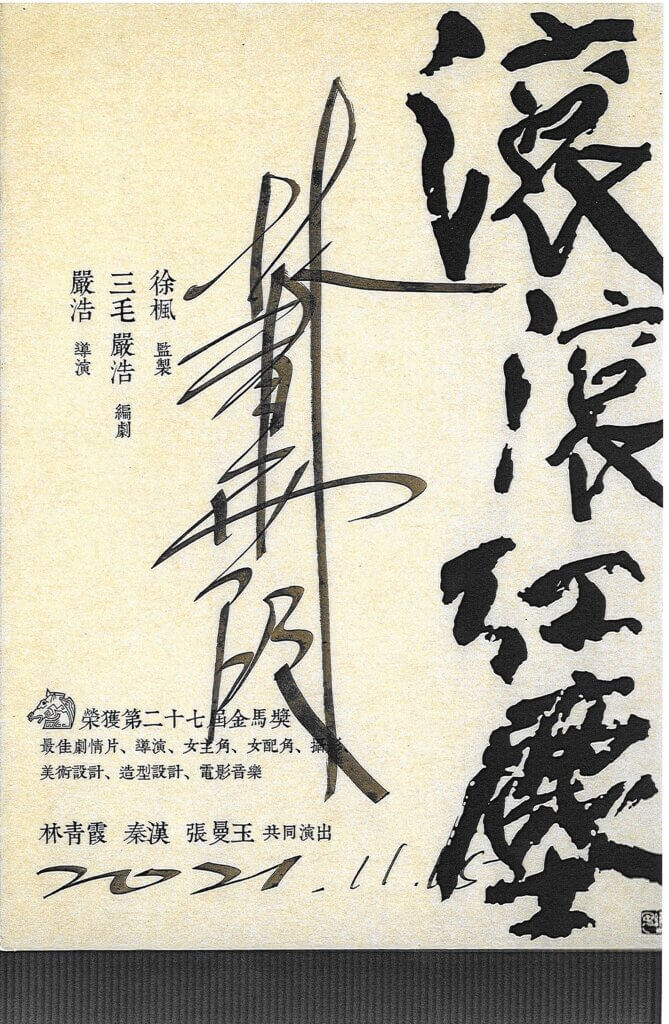 滾滾紅塵
徐楓 監製
三毛 嚴浩 編劇
嚴浩 導演
林青霞
榮獲第二十七屆金馬獎
最佳劇情片、導演、女主角、女配角、攝影、
美術設計、造型設計、電影音樂
林青霞 秦漢 張曼玉 共同演出
2021.11.15